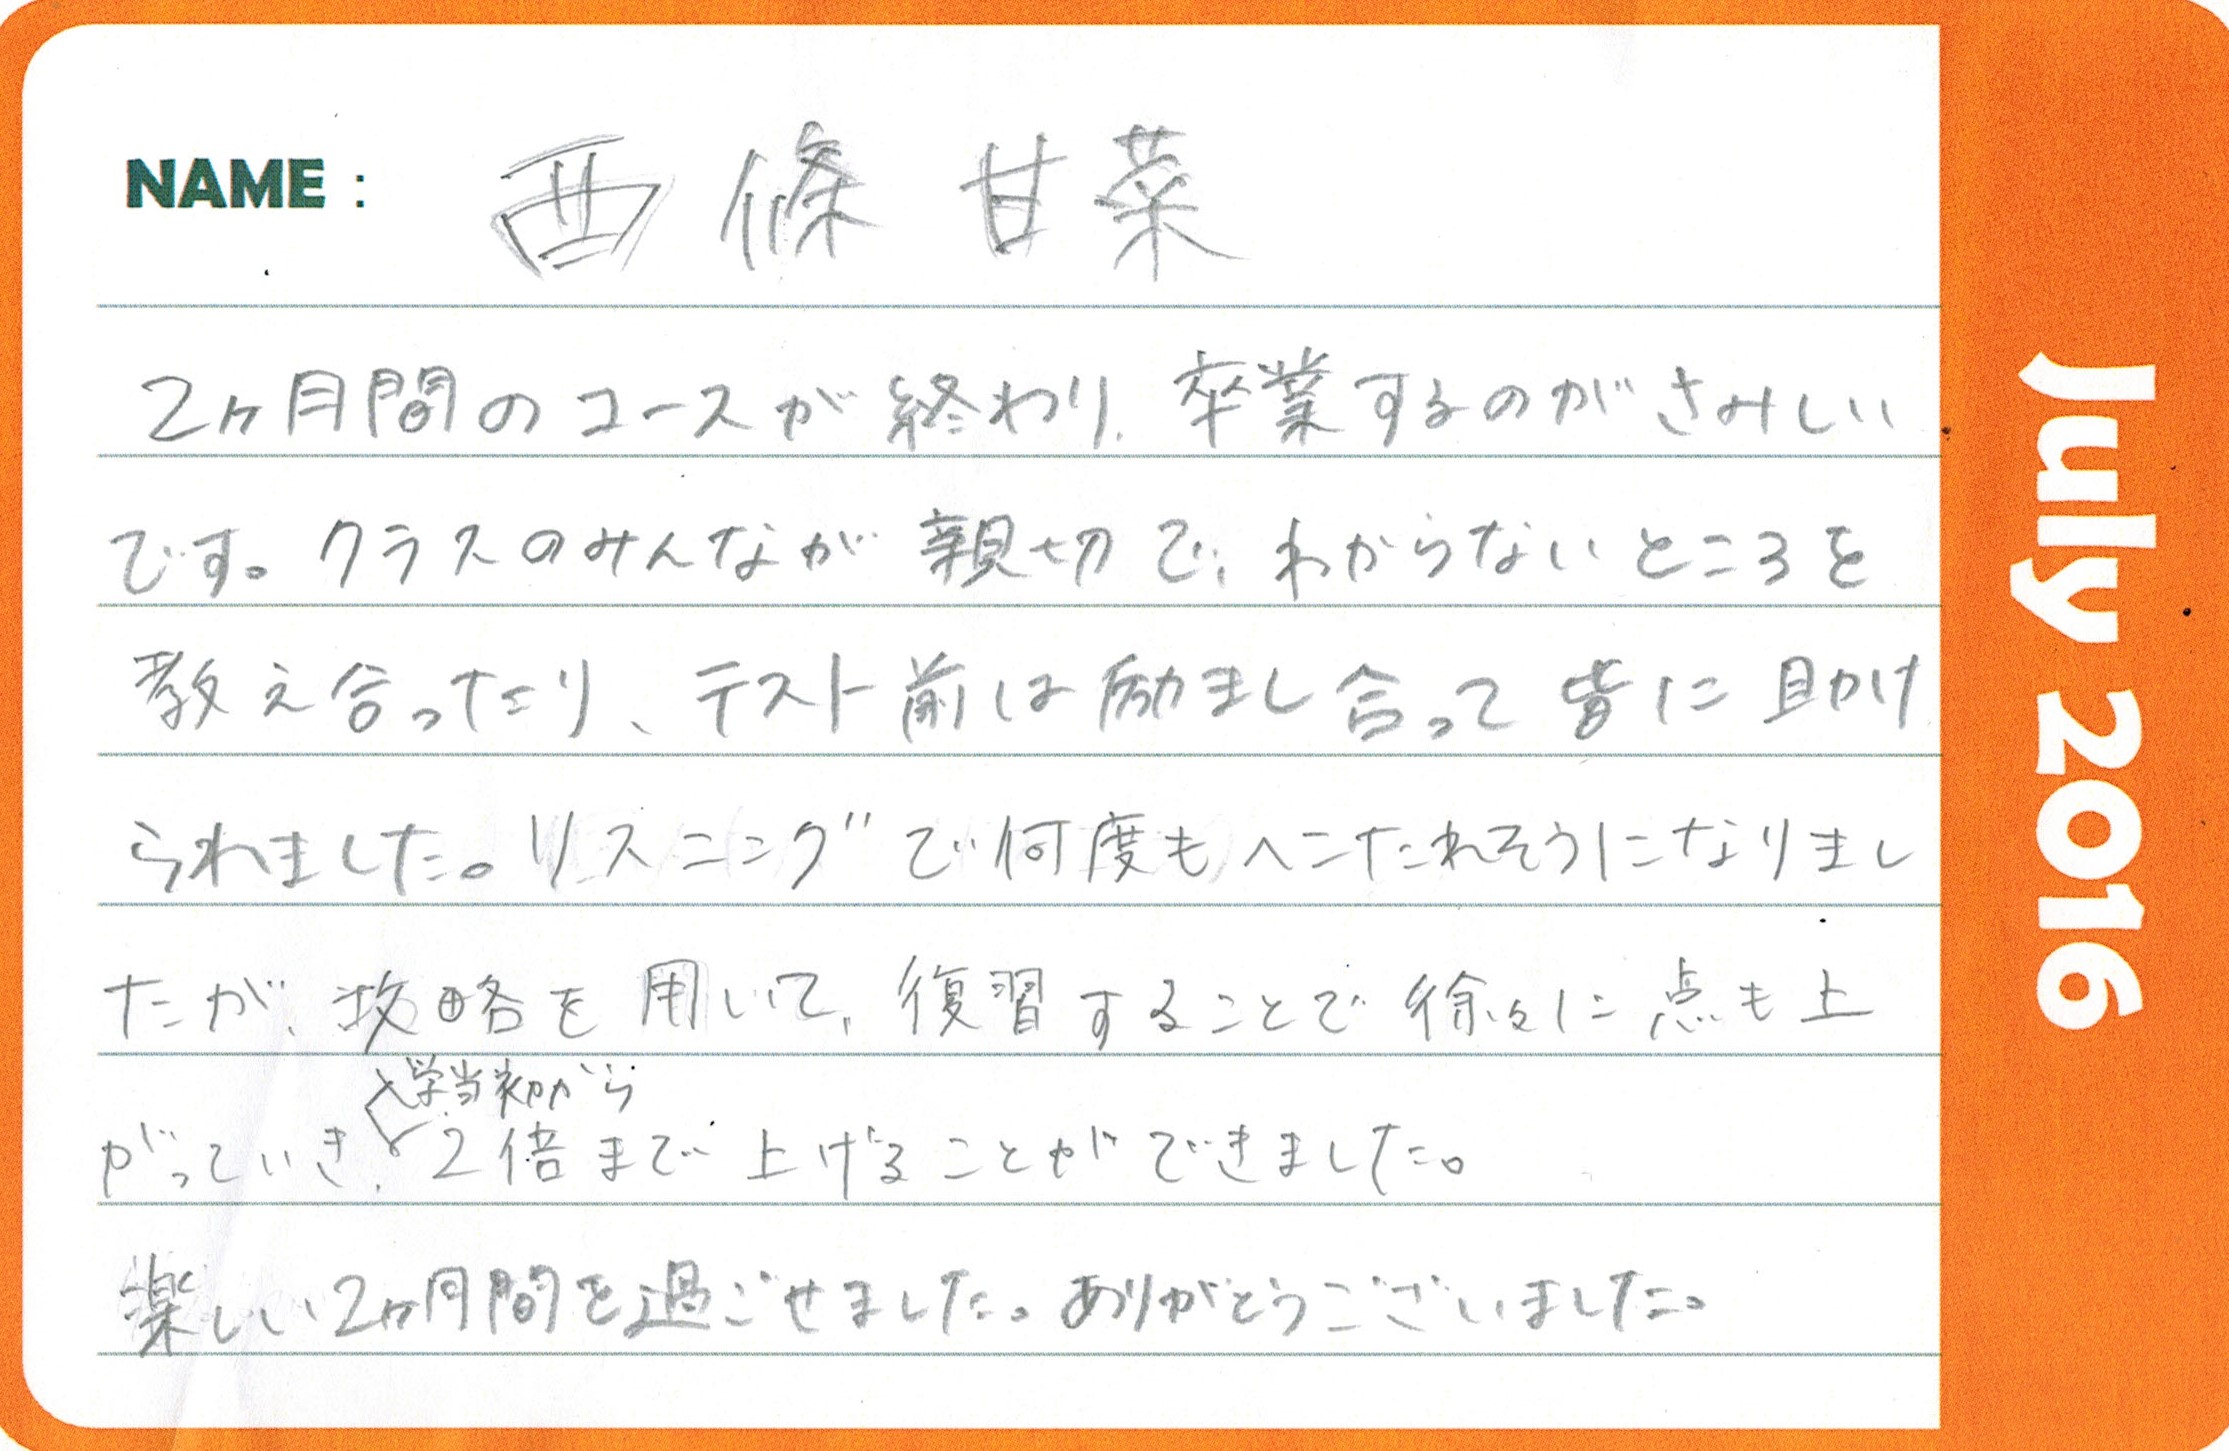 NAME : 西條 甘菜
2ヶ月間のコースが終わり、卒業するのがさみしい
です。クラスのみんなが親切で、わからないところを
教え合ったり、テスト前は励まし合って皆に助け
られました。リスニングで何度もへこたれそうになりまし
たが、攻略を用いて、復習することで徐々に点も上
入学当初から
がっていき、2倍まで上げることができました。
楽しい2ヶ月間を過ごせました。ありがとうございました。
July 2016